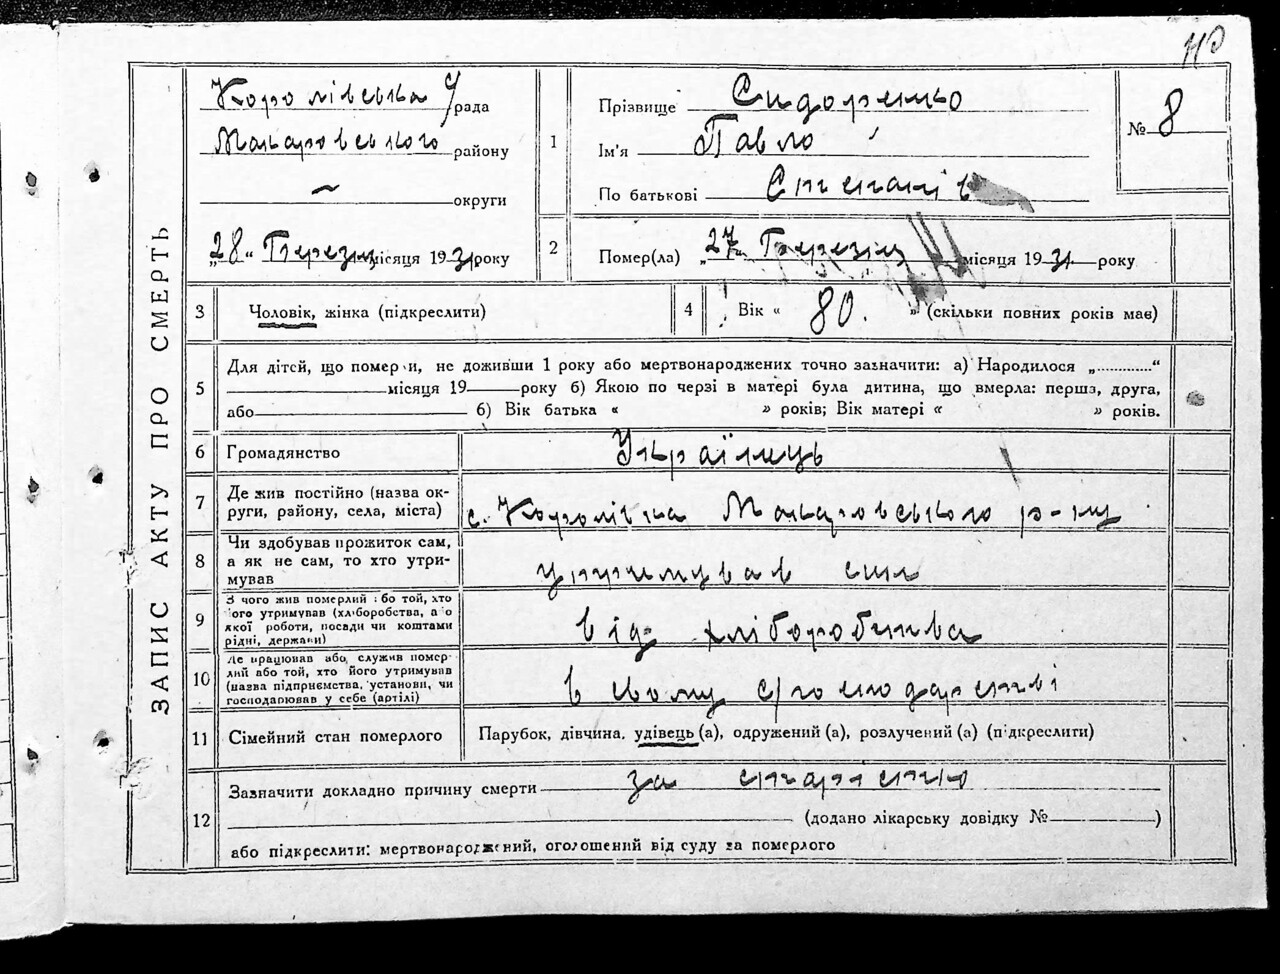 ЗАПИС АКТУ ПРО СМЕРТЬ
Королівська с/рада
Макаровського району
~ округи
„28" Березня місяця 1931 року
1
Прізвище Сидоренко
Ім'я Павло
По батькові Степанів
№ 8
2
Помер(ла) „27" Березня місяця 1931 року
3 Чоловік, жінка (підкреслити)
4 Вік « 80. » (скільки повних років має)
5
Для дітей, що померли, не доживши 1 року або мертвонароджених точно зазначити: а) Народилося „.............“
місяця 19 року б) Якою по черзі в матері була дитина, що вмерла: перша, друга,
або б) Вік батька « » років; Вік матері « » років.
6 Громадянство Українець
7
Де жив постійно (назва ок-
руги, району, села, міста) с. Королівка Макаровського р-ну
8
Чи здобував прожиток сам,
а як не сам, то хто утри-
мував
утримував син
9
З чого жив померлий або той, хто
його утримував (хліборобства, або
якої роботи, посади чи коштами
рідні, держави)
від хліборобства
10
Де працював або служив помер-
лий або той, хто його утримував
(назва підприємства, установи, чи
господарював у себе (артілі)
в свому с/господарстві
11 Сімейний стан померлого Парубок, дівчина, удівець (а), одружений (а), розлучений (а) (підкреслити)
12
Зазначити докладно причину смерти за старістю
(додано лікарську довідку № )
або підкреслити: мертвонароджений, оголошений від суду за померлого